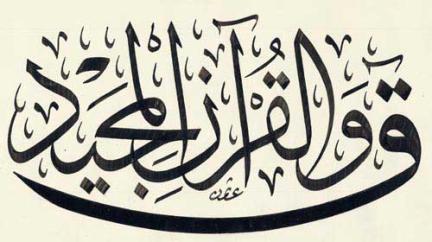 قۤ وَالْقُرْآنِ الْمَجِيدِ
عثمان